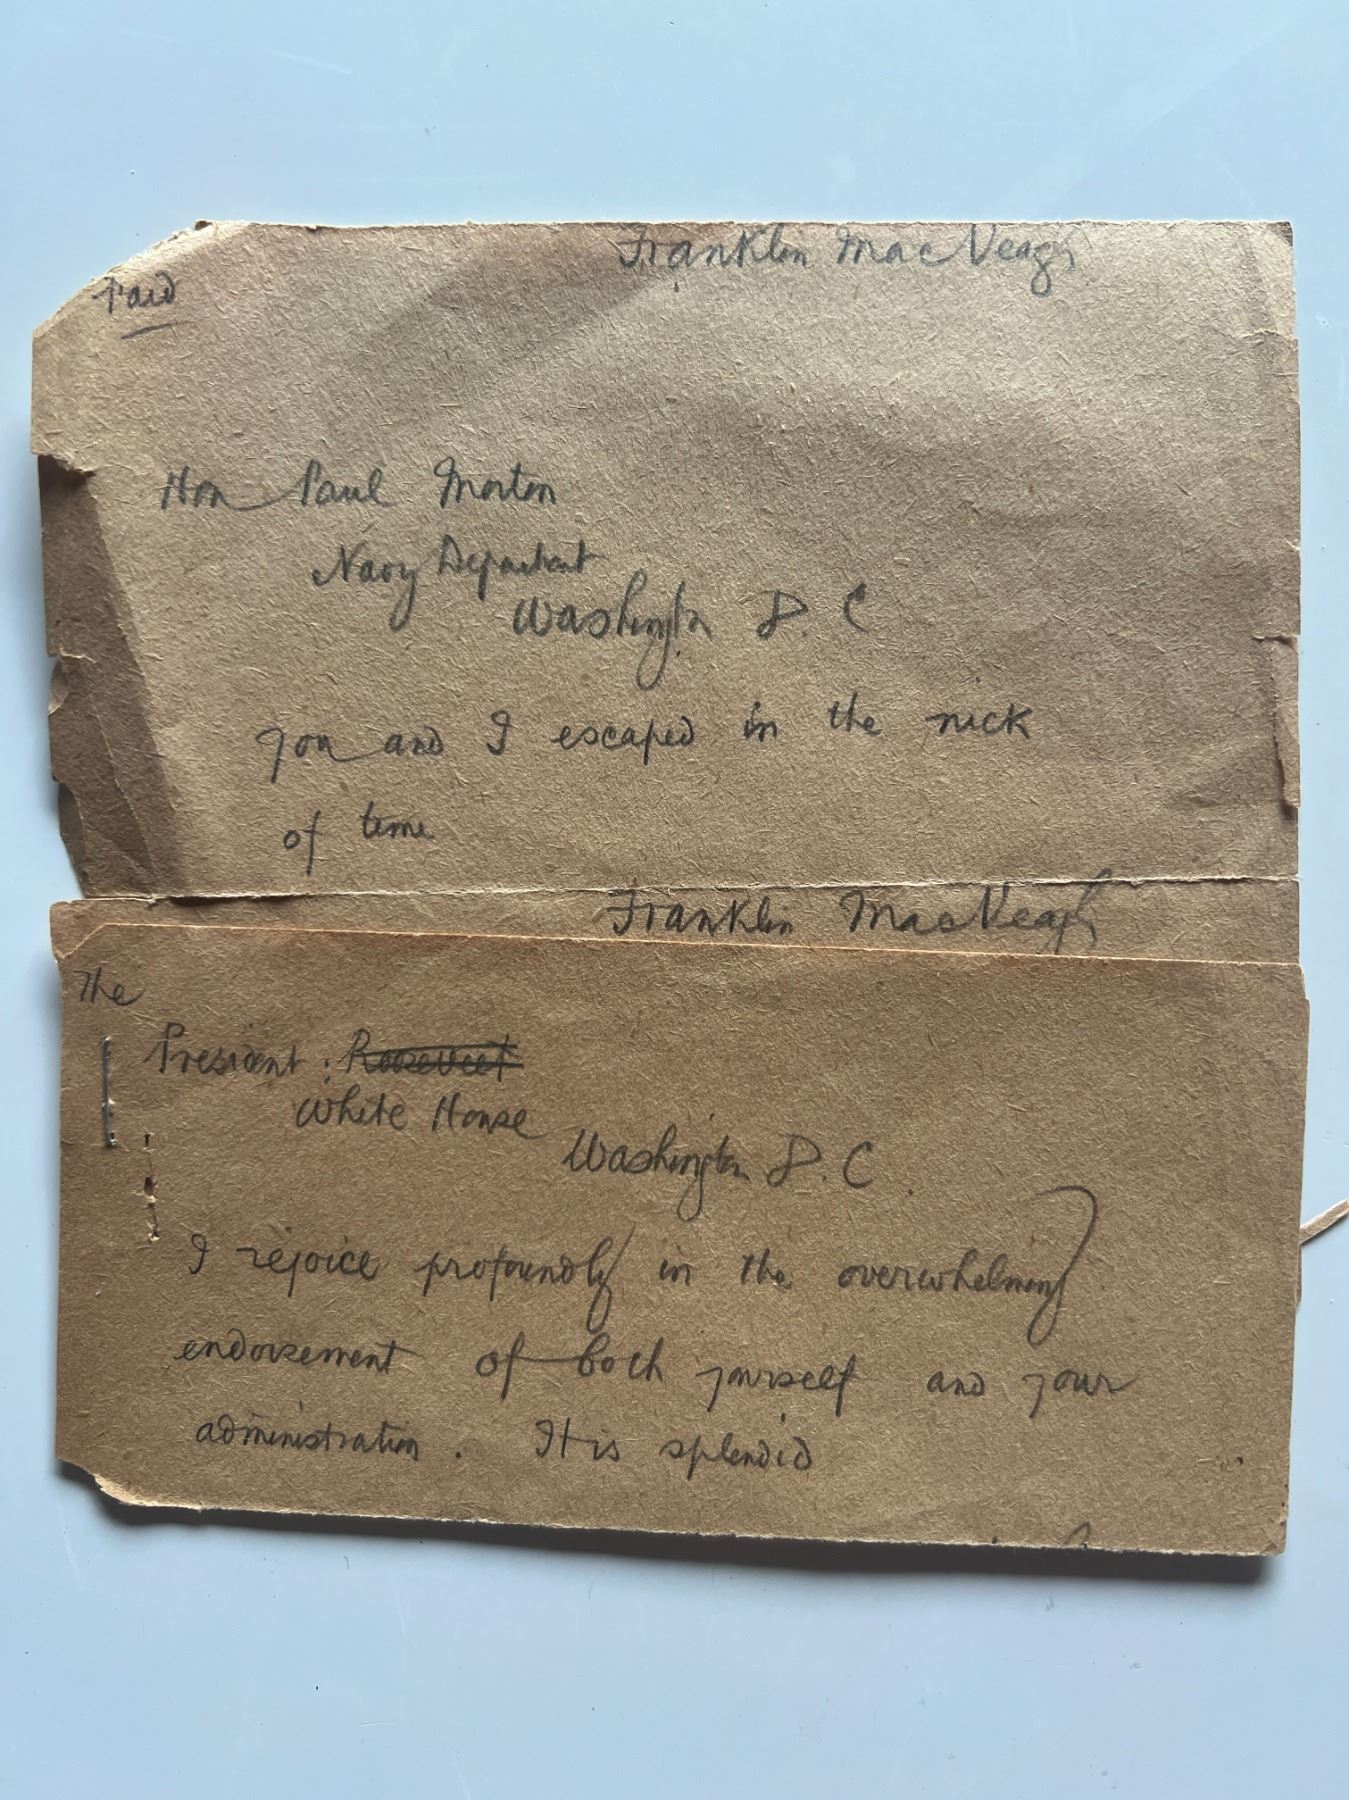 Franklin MacVeagh
Paid
Hon Paul Morton
Navy Department
Washington D. C
you and I escaped in the nick
of time
Franklin MacVeagh
The
President : Roosevelt
White House
Washington D. C
I rejoice profoundly in the overwhelming
endorsement of both yourself and your
administration . It is splendid